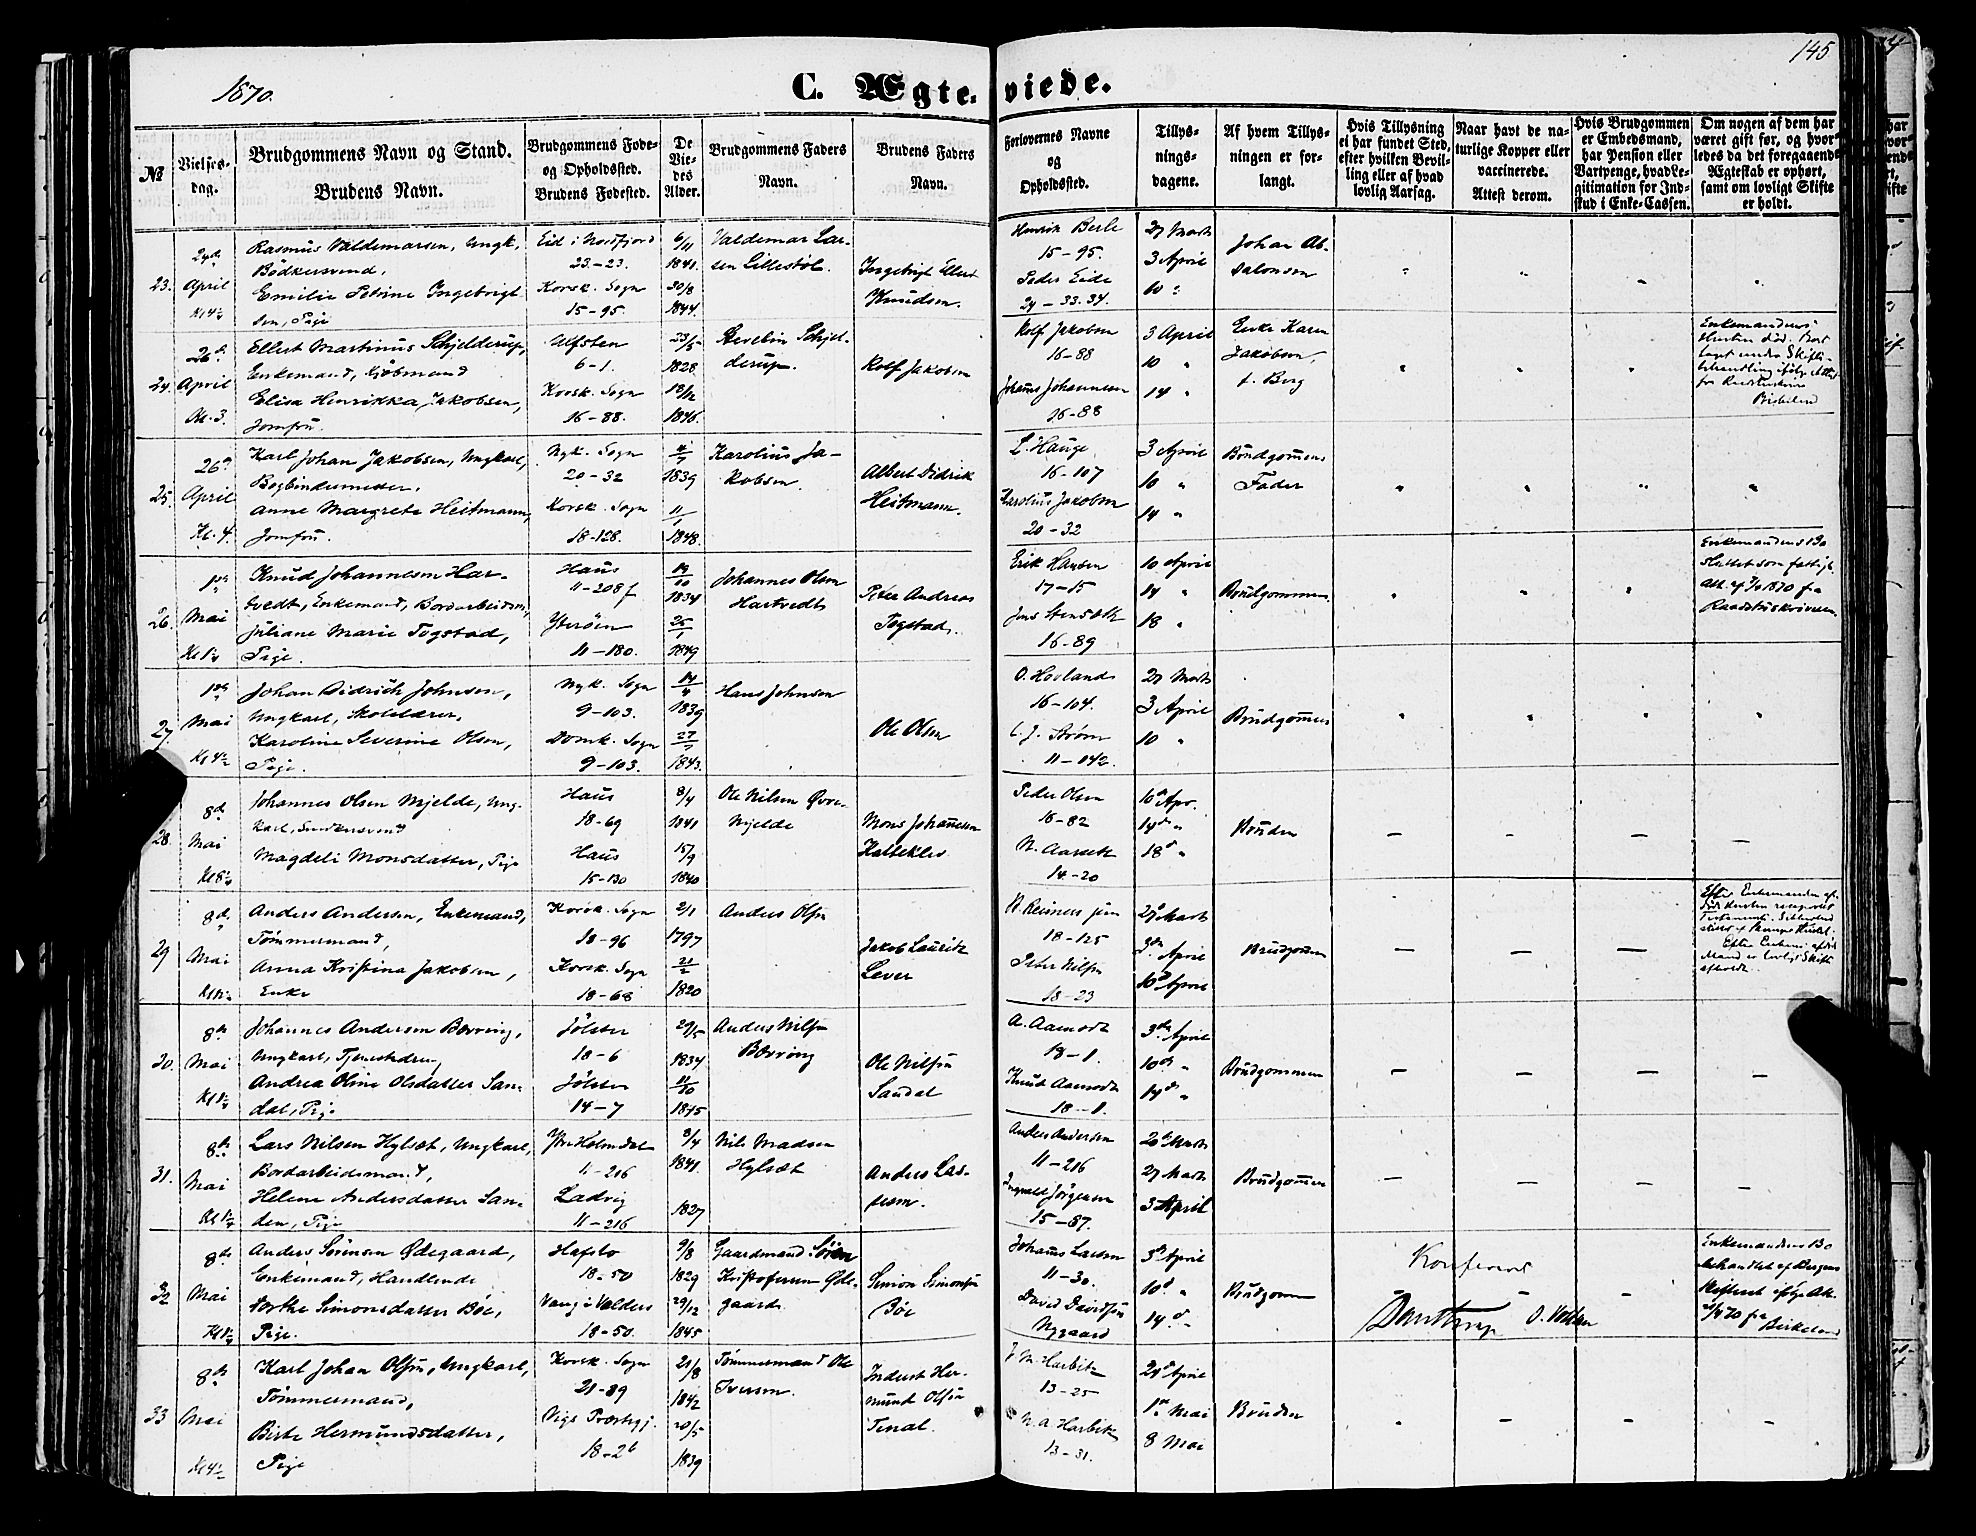 1870.
C. Ægte-
viede.
145
№
Vielses-
dag.
Brudgommens Navn og Stand.
Brudens Navn.
Brudgommens Føde-
og Opholdssted.
Brudens Fødested.
De
Vie-
des
Alder.
Brudgommens Faders
Navn.
Brudens Faders
Navn.
Forlovernes Navne
og
Opholdssted.
Tillys-
nings-
dagene.
Af hvem Tillys-
ningen er for-
langt.
Hvis Tillysning
ei har fundet Sted,
efter hvilken Bevil-
ling eller af hvad
lovlig Aarsag.
Naar havt de na-
turlige Kopper eller
vaccinerede.
Attest derom.
Hvis Brudgommen
er Embedsmand,
har Pension eller
Vartpenge, hvad Le-
gitimation for Ind-
skud i Enke-Cassen.
Om nogen af dem har
været gift før, og hvor-
ledes da det foregaaende
Ægteskab er ophørt,
samt om lovligt Skifte
er holdt.
23.
24de
April
Kl 4½
Rasmus Valdemarsen, Ungk.,
Bødkersvend,
Emilie Petrine Ingebrigt-
sen, Pige
Eid i Nordfjord
23.-23.
Korsk. Sogn
15-95.
6/11
1841.
30/8
1844.
Valdemar Lar-
sen Lillestøl.
Ingebrigt Ellert
Knudsen.
Henrik Berle
15-95.
Peder Eide
24-33.34.
27 Marts
3 April
10 "
Johan Ab-
salonsen
24.
26de
April
Kl. 3
Ellert Martinus Schjelderup,
Enkemand, Kjøbmand
Elisa Henrikka Jakobsen,
Jomfru.
Alfsten
6-1.
Korsk. Sogn
16-88.
23/5
1828
18/12
1846.
Schjel-
derup.
Rolf Jakobsen
Rolf Jakobsen
16-88
Johannes Johannesen
16-88
3 April
10 "
14 "
Enke Karen
Jakobsen,
f. Berg
Enkemandens
Hustru død. Boet
taget under Skifte-
behandling ifølge Attest
fra
Birkeland
25.
26de
April
Kl. 4.
Karl Johan Jakobsen, Ungkarl,
Bogbindermester,
Anne Margrete Heitmann,
Jomfru.
Nyk. Sogn
20-32
Korsk. Sogn
18-128.
1839
11/1
1848.
Karolius Ja-
kobsen.
Albert Didrik
Heitmann.
L. Hauge
16-107
Karolius Jakobsen
20-32
3 April
10 "
14 "
Brudgommens
Fader
26.
1ste
Mai
Kl 1½
Knud Johannesen Har-
tvedt, Enkemand, Bordarbeidsm.,
Juliane Marie Togstad,
Pige.
Haus
11-208f
Yterøen
11-180.
19/10
1834
25/1
1849
Johannes Olsen
Hartvedt
Peter Andreas
Togstad.
Erik Hansen
17-15
Jens
16-89
10 April
14 "
18 "
Brudgommen.
Enkemandens Bo
sluttet som fattigt
Att. af 1870 fra
Raadstuskriveren.
27
1ste
Mai
Kl 4½
Johan Didrich Johnsen,
Ungkarl, Skolelærer,
Karoline Severine Olsen,
Pige.
Nyk. Sogn
9-103.
Domk. Sogn
9-103.
14/4
1839
27/7
1843.
Hans Johnsen
Ole Olsen
O. Hovland
16-104.
C. J. Strøm
11-142.
27 Marts
3 April
10 "
Brudgommen
28.
8de
Mai
Johannes Olsen Mjelde, Ung-
karl,
Magdeli Monsdatter, Pige
Haus
18-69
Haus
15-130
8/4
1841
15/9
1840
Ole Nilsen Øvre-
Mjelde
Mons Johannesen
Kalseklev
Peder Olsen
18-82
N. Aarseth
14-20
10de Apr.
14de "
18de "
Bruden
29
8de
Mai
Anders Andersen, Enkemand,
Tømmermand,
Anna Kristina Jakobsen,
Enke
Korsk. Sogn
18-96
Korsk. Sogn
18-68
2/1
1797
21/2
1820
Anders Olsen
Jakob Lauritz
Lever
H. Reimers jun
18-125
Peter Nilsen
18-23
27de Marts
3de April
10de April
Brudgommen
Mand er lovligt Skifte
afholdt.
30.
8de
Mai
Johannes Andersen Børving,
Ungkarl, Tjenestedreng
Andrea Oline Olsdatter San-
dal, Pige
Jølster
18-6
Jølster
14-7
29/5
1834
11/10
1845
Anders Nilsen
Børving
Ole Nilsen
Sandal
A. Aamodt
18-1.
Knud Aamodt
18-1.
3de April
10de "
14de "
Brudgommen
31.
8de
Mai
Lars Nilsen Hylsæt, Ungkarl,
Bordarbeidsmand,
Helene Andersdatter San-
den, Pige
Ytre Holmedal
11-216
Ladvig
11-216
8/4
1841.
1827
Nils Madsen
Hylsæt
Anders Las-
sesen.
Anders Andersen
11-216
Ingvald Jørgensen
15-87.
20de Marts
27 Marts
3 April
Brudgommen
32
8de
Mai
Anders Sørensen Ødegaard,
Enkemand, Handlende
Dorthe Simonsdatter Bøe,
Pige.
Hafslo
18-50
Vang i Valders
18-50.
9/8
1829
29/12
1845
Gaardmand Sören
Kristofersen Øde-
gaard
Simon Simonsen
Bøe
Johannes Larsen
11-30.
David Davidsen
Nygaard
3de April
10de "
14de "
Brudgommen
Konfereret
Enkemandens Bo
behandlet af Bergens
Skifteret ifølge Att.
fra
Birkeland
33
8de
Mai
Kl 4½
Karl Johan Olsen, Ungkarl,
Tømmermand,
Birte Hermundsdatter,
Pige
Korsk. Sogn
21-89
Vigs Præstegj.
18-26
21/8
1842
20/5
1839
Tømmermand Ole
Iversen.
Inderst Her-
mund Olsen
J. M. Harbitz
13-25
N. A. Harbitz
13-31.
24de April
1ste Mai
8 Mai
Bruden